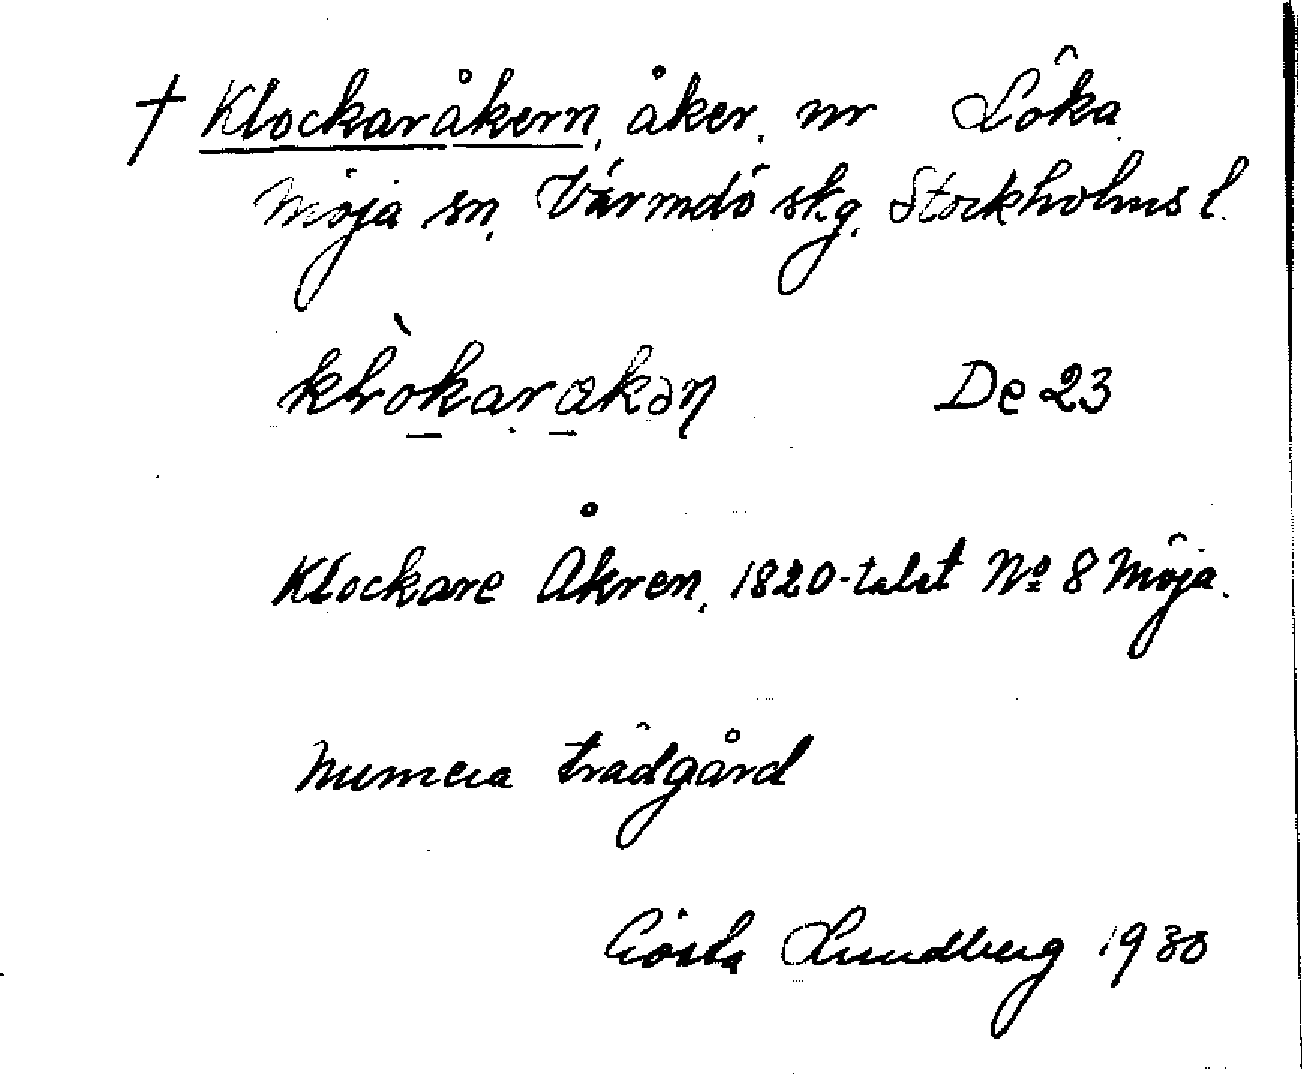 † Klockaråkern, åker, nr Löka
Möja sn, Värmdö skg, Stockholms l.
De 23
Klockare Åkren, 1820-talet No 8 Möja.
Numera trädgård
Gösta Lundberg 1930